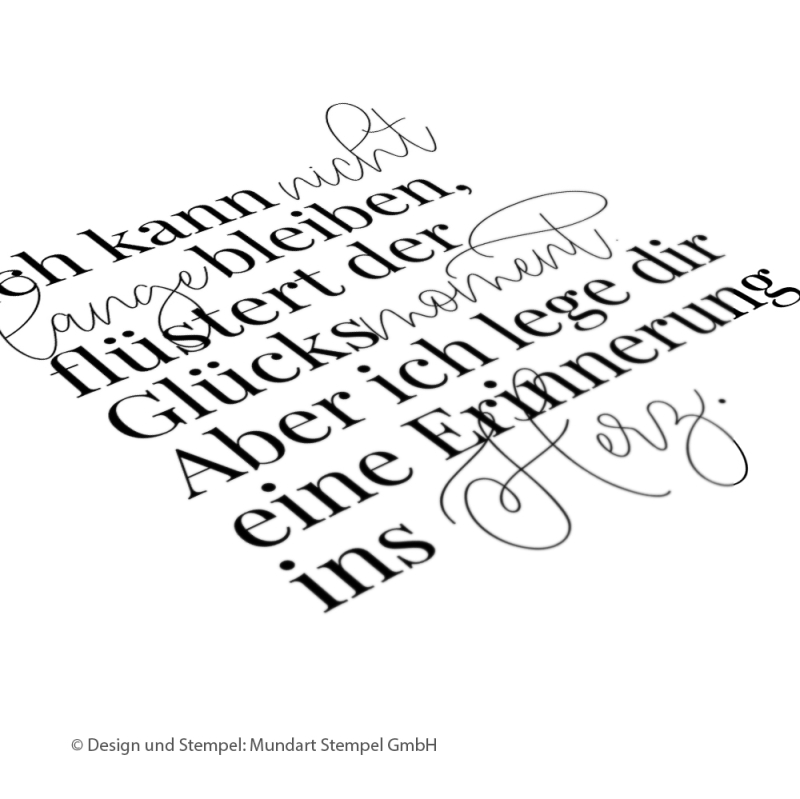 Ich kann nicht
lange bleiben,
flüstert der
Glücksmoment.
Aber ich lege dir
eine Erinnerung
ins Herz.
© Design und Stempel: Mundart Stempel GmbH